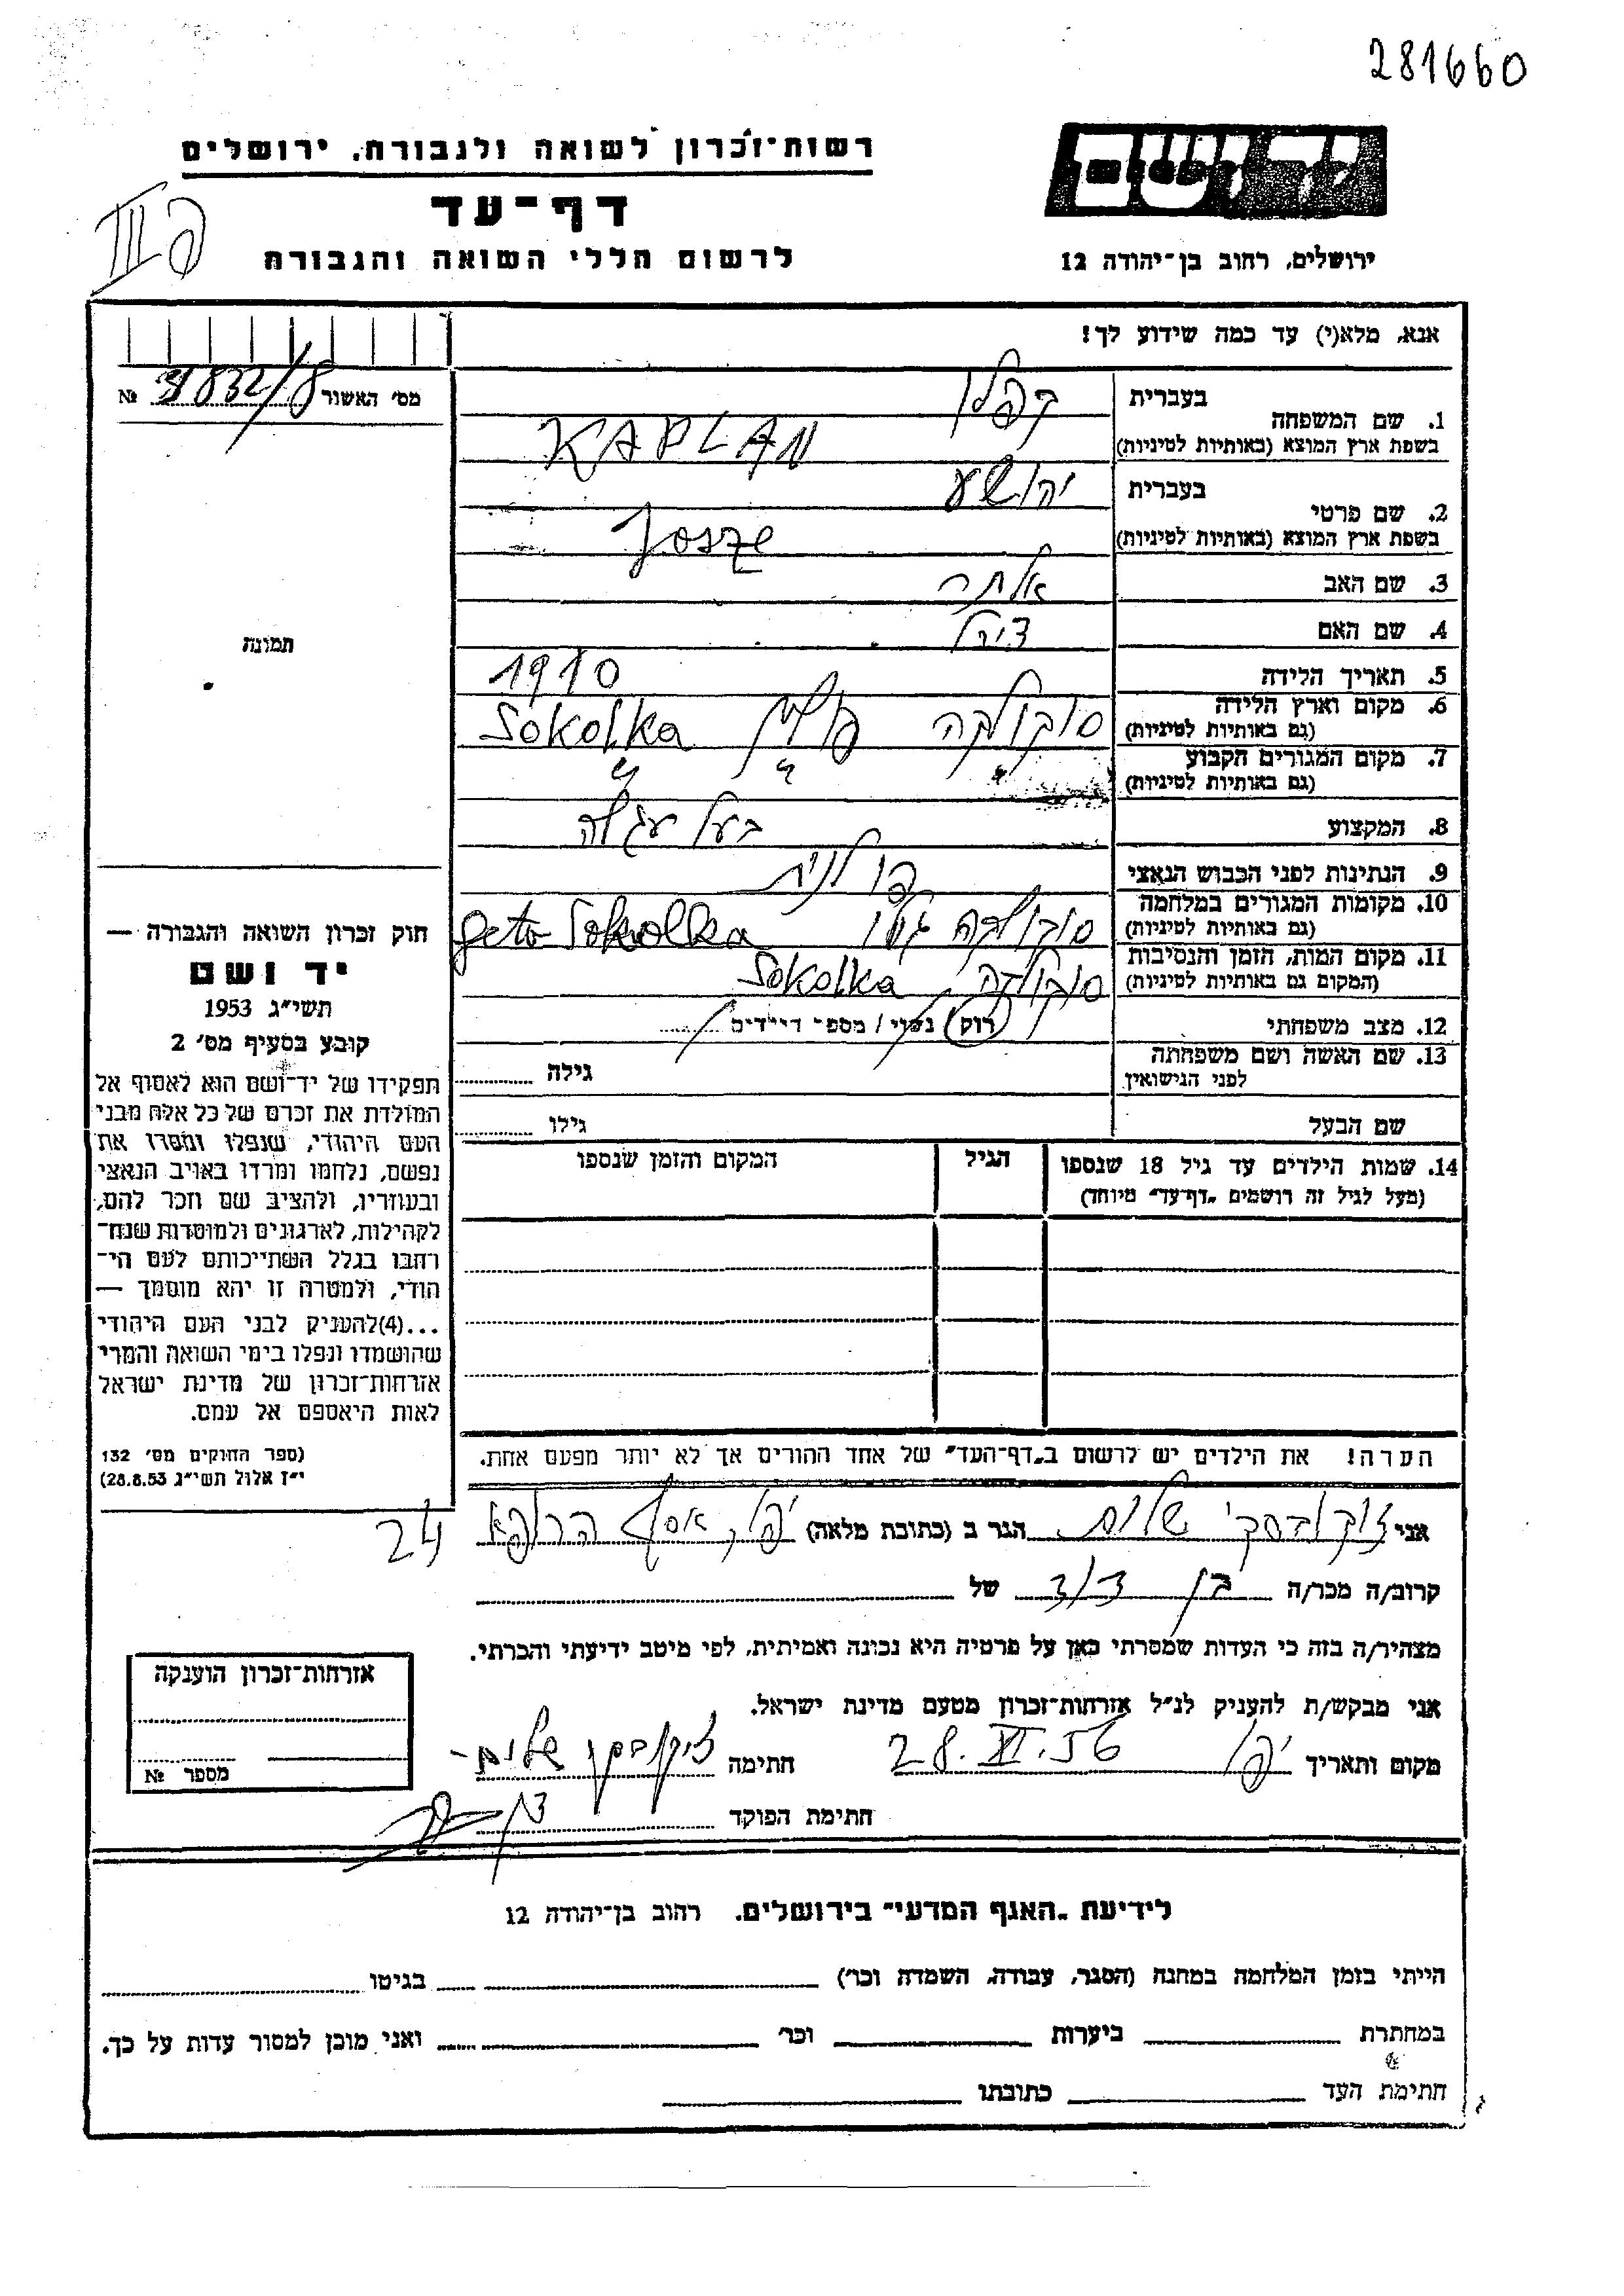 281660
יד ושם
רשות־זכרון לשואה ולגבורה, ירושלים
דף־עד
לרשום חללי השואה והגבורה
ירושלים, רחוב בן־יהודה 12
אנא, מלא(י) עד כמה שידוע לך!
מס׳ האשור №
1. שם המשפחה
בעברית קפלן
בשפת ארץ המוצא (באותיות לטיניות) KAPLAN
2. שם פרטי
בעברית יהושע
בשפת ארץ המוצא (באותיות לטיניות) Josze
3. שם האב אלתר
4. שם האם
5. תאריך הלידה 1910
6. מקום וארץ הלידה סוקולקה פולין Sokolka
(גם באותיות לטיניות)
7. מקום המגורים הקבוע " " "
(גם באותיות לטיניות)
8. המקצוע בעל עגלה
9. הנתינות לפני הכבוש הנאצי פולנית
10. מקומות המגורים במלחמה סוקולקה גטו geto Sokolka
(גם באותיות לטיניות)
11. מקום המות, הזמן והנסיבות סוקולקה Sokolka
(המקום גם באותיות לטיניות)
12. מצב משפחתי רוק / נשוי / מספר הילדים
13. שם האשה ושם משפחתה
לפני הנישואין
גילה
שם הבעל גילו
14. שמות הילדים עד גיל 18 שנספו
(מעל לגיל זה רושמים „דף־עד" מיוחד)
הגיל
המקום והזמן שנספו
תמונה
חוק זכרון השואה והגבורה —
יד ושם
תשי״ג 1953
קובע בסעיף מס׳ 2
תפקידו של יד־ושם הוא לאסוף אל
המולדת את זכרם של כל אלה מבני
העם היהודי, שנפלו ומסרו את
נפשם, נלחמו ומרדו באויב הנאצי
ובעוזריו, ולהציב שם וזכר להם,
לקהילות, לארגונים ולמוסדות שנח־
רבו בגלל השתייכותם לעם הי־
הודי, ולמטרה זו יהא מוסמך —
...(4)להעניק לבני העם היהודי
שהושמדו ונפלו בימי השואה והמרי
אזרחות־זכרון של מדינת ישראל
לאות היאספם אל עמם.
(ספר החוקים מס׳ 132
י״ז אלול תשי״ג 28.8.53)
הערה! את הילדים יש לרשום ב„דף־העד" של אחד ההורים אך לא יותר מפעם אחת.
אני שלום הגר ב (כתובת מלאה) יפו, אסף הרופא 24
קרוב/ה מכר/ה בן דוד של
מצהיר/ה בזה כי העדות שמסרתי כאן על פרטיה היא נכונה ואמיתית, לפי מיטב ידיעתי והכרתי.
אני מבקש/ת להעניק לנ״ל אזרחות־זכרון מטעם מדינת ישראל.
מקום ותאריך יפו 28.VI.56 חתימה שלום
חתימת הפוקד
אזרחות־זכרון הוענקה
מספר №
לידיעת „האגף המדעי" בירושלים. רחוב בן־יהודה 12
הייתי בזמן המלחמה במחנה (הסגר, עבודה, השמדה וכו׳) בגיטו
במחתרת ביערות וכו׳ ואני מוכן למסור עדות על כך.
חתימת העד כתובתו